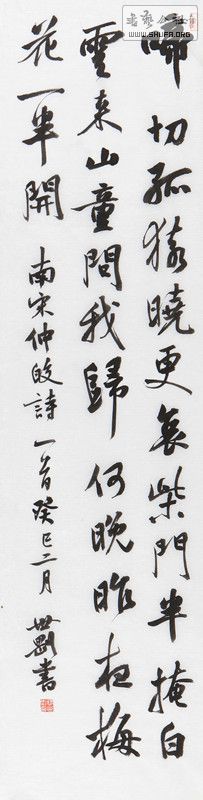 啼切孤猿曉更哀柴門半掩白
雲來山童問我歸何晚昨夜梅
花一半開 南宋仲皎詩一首癸巳二月 世劉書
書藝公社
WWW.SHUFA.ORG